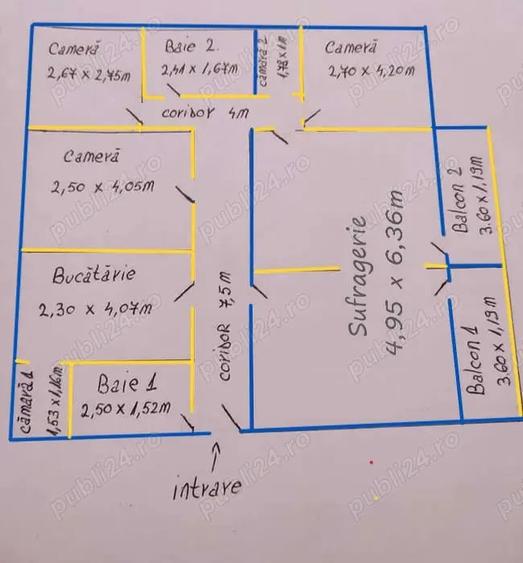 Cameră
2,67 x 2,75m
Baie 2
2,41 x 1,67m
cămară 2
1,78 x 1m
Cameră
2,70 x 4,20m
coridor 4m
Cameră
2,50 x 4,05m
Bucătărie
2,30 x 4,07m
cămară 1
1,53 x 1,16m
Baie 1
2,50 x 1,52m
coridor 7,5m
Sufragerie
4,95 x 6,36m
Balcon 2
3.60 x 1,19m
Balcon 1
3.60 x 1,19m
intrare
publi24.ro